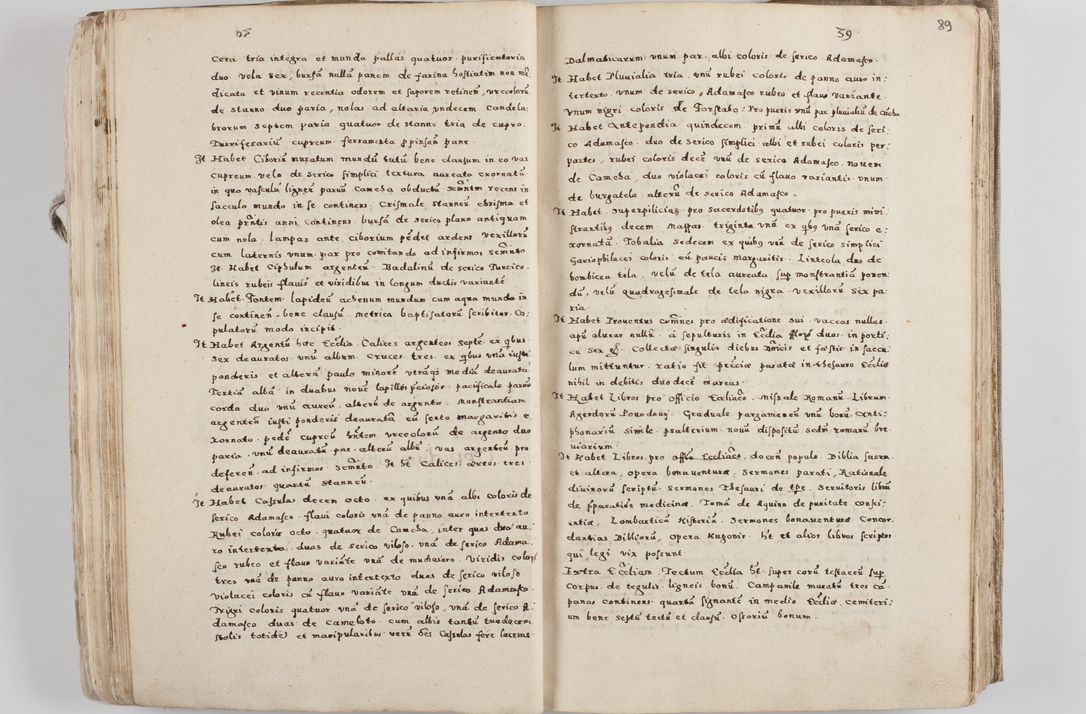 cera tria integra et munda pallas quatuor purificatoria
duo vela sex, bursã nullã panem de farina hostiatim non mẽ
dicata et vinum recentia odorem et saporem retineñ, vrceolorũ
de stanno duo paria, nolas ad altaria vndecem Candela-
brorum septem paria quatuor de stanno tria de cupro.
Turriferariũ cupreum ferramenta
It Habet Ciboriũ muratum mundũ tutũ bene clausum in eo vas
cupreum velo de serico simplici textura aureato exornatũ
in quo vasculũ ligneũ parũ Cameha obductũ recens in
sacculo mundo in se continens. Crismale stanneũ chrisma et
olea anni continens bursã de serico plano antiquam
cum nola. lampas ante ciborium pẽdet ardens vexillorũ
cum laternis vnum par pro comitando ad infirmos
It Habet Ciphulum argenteũ. Badalinũ de serico Turcico
lineis rubeis flauis et viridibus in longum ductis variantẽ
It Habet Fontem lapideũ achenum mundum cum aqua mundo in
se contineñ bene clausũ metrica baptisatorũ scribitur Co-
pulatorũ modo incipit.
It Habet Argentũ hæc Ecclĩa Calices argenteos septẽ ex qbus
sex deauratos vnũ album. Cruces tres ex qbus vnã iusti
ponderis et alterã paulo minorẽ vtrãqs mediã deauratã
Tertiã albã in duabus nouẽ lapillos pciosos pacificale parũ
corda duo vnũ aureũ, alterũ de argento. Monstrantiam
argenteũ iusti ponderis deauratã cũ serto margaritis e
xornato pedẽ cupreũ hñtem vrceolorũ de argento duo
paria vnũ deauratũ par alterũ albũ. vas argenteũ pro
defereñ ad infirmos Calices æreos tres
deauratos quartũ stanneũ.
It Habet Casulas decem octo ex quibus vnã albi coloris de
serico Adamasco flaui coloris vnã de panno auro intertexto
Rubei coloris octo quatuor de Cameha, inter quas duo au-
ro intertexta duas de serico viloso vnã de serico Adama-
sco rubeo et flauo variãte vnã de muchaiero. Viridis coloris
tres vnã de panno auro intertexto duas de serico viloso
violacei coloris cũ flauo variãte vnã de serico Adamasco
Nigri coloris quatuor vnã de serico viloso, vnã de serico A-
damasco duas de cameloto cum albis tantũ
stolis totidẽ et manipularibus verũ Casulas fere laceme
59 89
Dalmaticarum vnum par albi coloris de serico Adamasco.
It Habet Pluuialia tria vnũ rubei coloris de panno auro in-
tertexto vnum de serico Adamasco rubeo et flauo variante
vnum nigri coloris de Forstato: Pro pueris vnũ par pluuialiũ de
It Habet Antependia quindecem primũ albi coloris de seri-
co Adamasco duo de serico simplici albi et rubei coloris per
partes, rubei coloris decẽ vnũ de serico Adamasco nouem
de Cameha, duo violacei coloris cũ flauo variantis vnum
de burgatela alterũ de serico Adamasco.
It Habet superpilicia pro sacerdotibus quatuor pro pueris mini-
strantibus decem mappas triginta vnã ex qbus vnã serico e-
xornatã. Tobalia sedecem ex quibus vnũ de serico simplici
Gariophilacei coloris cũ paucis margaritis. Linteola duo de
bombicea tela. velũ de tela aureata sup monstrantiã ponen-
dũ, velũ quadragesimale de tela nigra vexillorũ sex pa-
ria
It Habet Prouentus pro ædificatione sui vaccas nullas
apũ aluear nullũ à sepulturis in Ecclĩa duos in porti-
cu sex Collectæ singulis diebus et in saccu-
lum mittuntur ratio fit peccũiæ paratæ in thesauro Ecclĩæ
nihil in debitis duodecẽ marcas.
It Habet Libros pro officio missale Romanũ. Librum
Agendorũ Graduale pargameneũ vnũ bonũ. Anti-
phonariũ simile psalterium nouũ dispositũ romanũ bre
uiarium
It Habet Libros pro docẽn populo. Biblia sacra
et altera, opera bonauenturæ, sermones parati, Rationale
diuinorũ scriptũ, sermones Thesauri de Seruitoris librũ
de pparatiõe medicinæ. Tomã de Aquino de puritate consci-
entiæ, Lombartica Historiã. Sermones bonauenturæ Concor
dantias Bibliorũ, opera Hugonis et alios libros scriptos
qui legi vix possunt
Extra Ecclĩam. Tectum Ecclĩa super corũ testaceũ sup
corpus de tegulis ligneis bonũ. Campanile muratũ tres cã-
panas continens quartã signantẽ in medio Ecclĩæ, cemiteri-
um bene septũ tectũ et clausũ. Ostoriũ bonum.